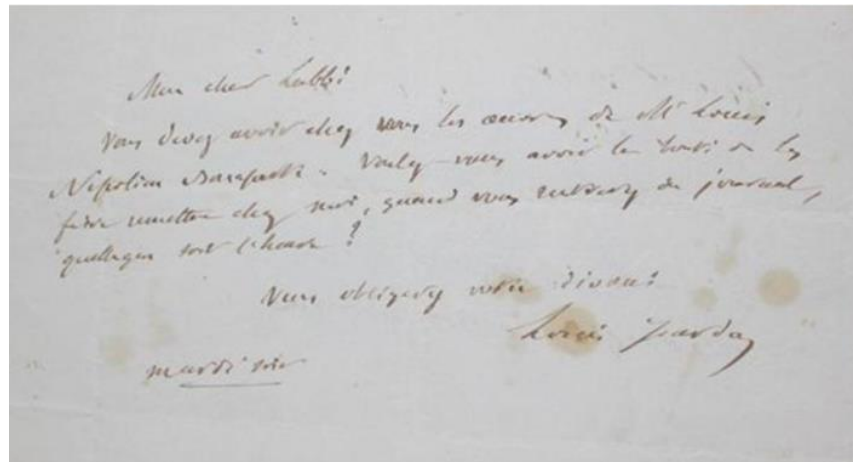 Mon cher Labbé
Vous devez avoir chez vous les œuvres de Mr Louis
Napoléon Bonaparte. Voulez vous avoir la bonté de les
faire remettre chez moi, quand vous rentrerez du journal,
quelle que soit l'heure ?
Vous obligerez votre dévoué
Louis
mardi soir